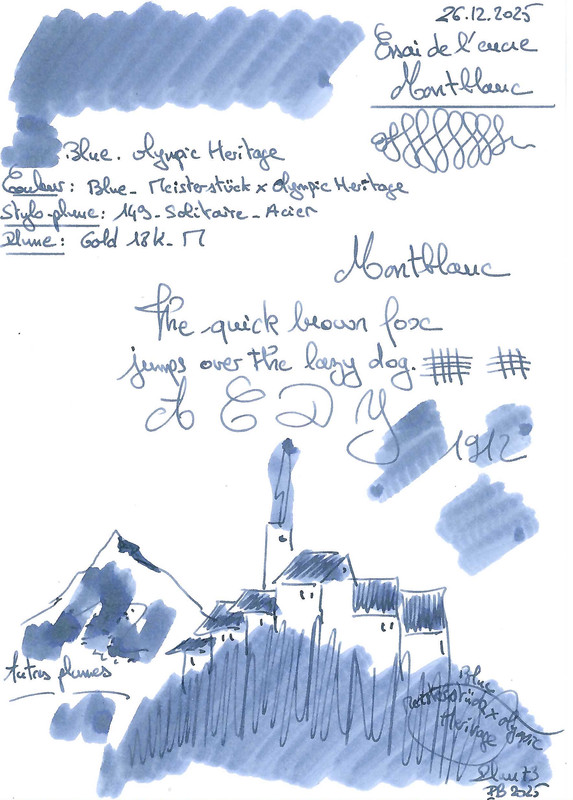 26.12.2025
Essai de l'encre
Montblanc
Blue. Olympic Heritage
Couleur: Blue_ Meisterstück x Olympic Heritage
Stylo-plume: 149_ Solitaire_ Acier
Plume: Gold 18k_ M
Montblanc
The quick brown fox
jumps over the lazy dog.
A E D Y
1912
Autres plumes
Blue
Meisterstück x Olympic
Heritage
PB 2025